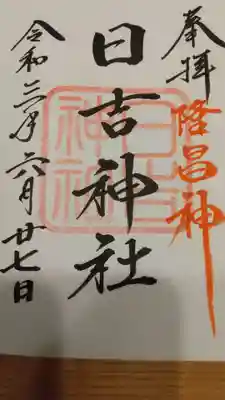 奉拝 隆昌神
日吉神社
令和三年六月廿七日
日吉神社